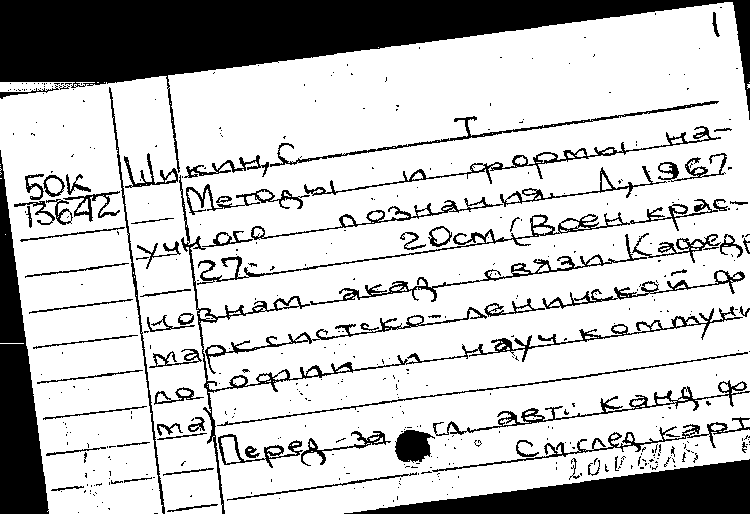 1
Шикин, С. Т.
50к
13642
Методы и формы на-
учного познания. Л., 1967.
27с. 20см. (Воен. крас-
нознам. акад. связи. Кафедр
марксистско-ленинской ф
лософии и науч. коммуни
ма)
Перед. загл. авт.: канд. ф
См. след. карт